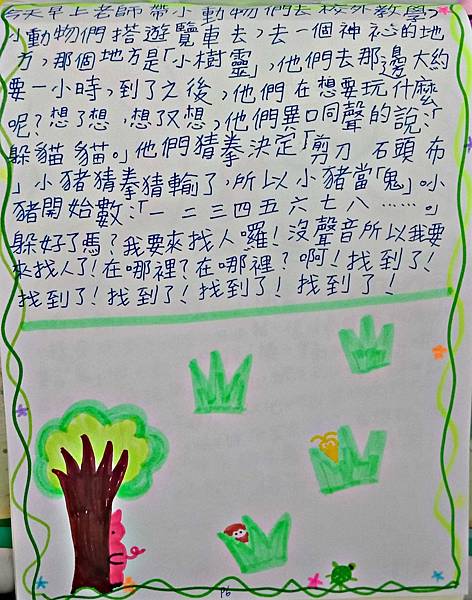 今天早上老師帶小動物們去校外教學,
小動物們搭遊覽車去,去一個神祕的地
方,那個地方是「小樹靈」,他們去那邊大約
要一小時,到了之後,他們在想要玩什麼
呢?想了想,想了又想,他們異口同聲的說:「
躲貓貓。」他們猜拳決定「剪刀 石頭 布
」小豬猜拳猜輸了,所以小豬當「鬼」小
豬開始數:「一二三四五六七八……。」
躲好了馬?我要來找人囉!沒聲音所以我要
來找人了!在哪裡?在哪裡?啊!找到了!
找到了!找到了!找到了!找到了!
P6